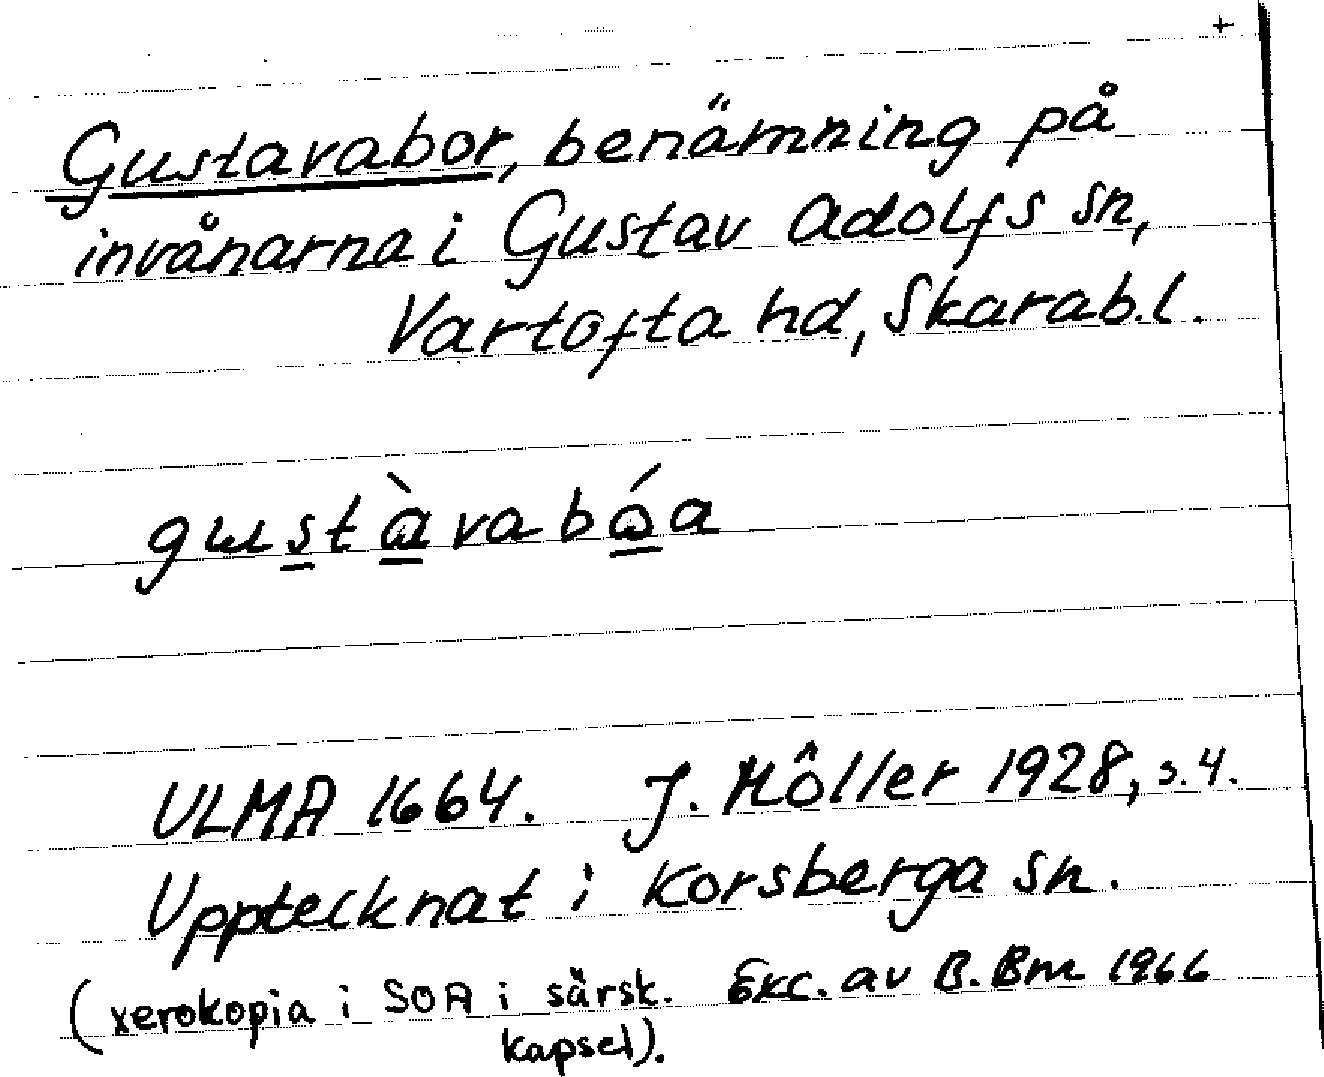 +
Gustavabor, benämning på
invånarna i Gustav Adolfs sn,
Vartofta hd, Skarab.l.
J. Möller 1928, s.4.
ULMA 1664.
Upptecknat i Korsberga sn.
(xerokopia i SOA i särsk. Exc. av B. Bm 1966
kapsel).